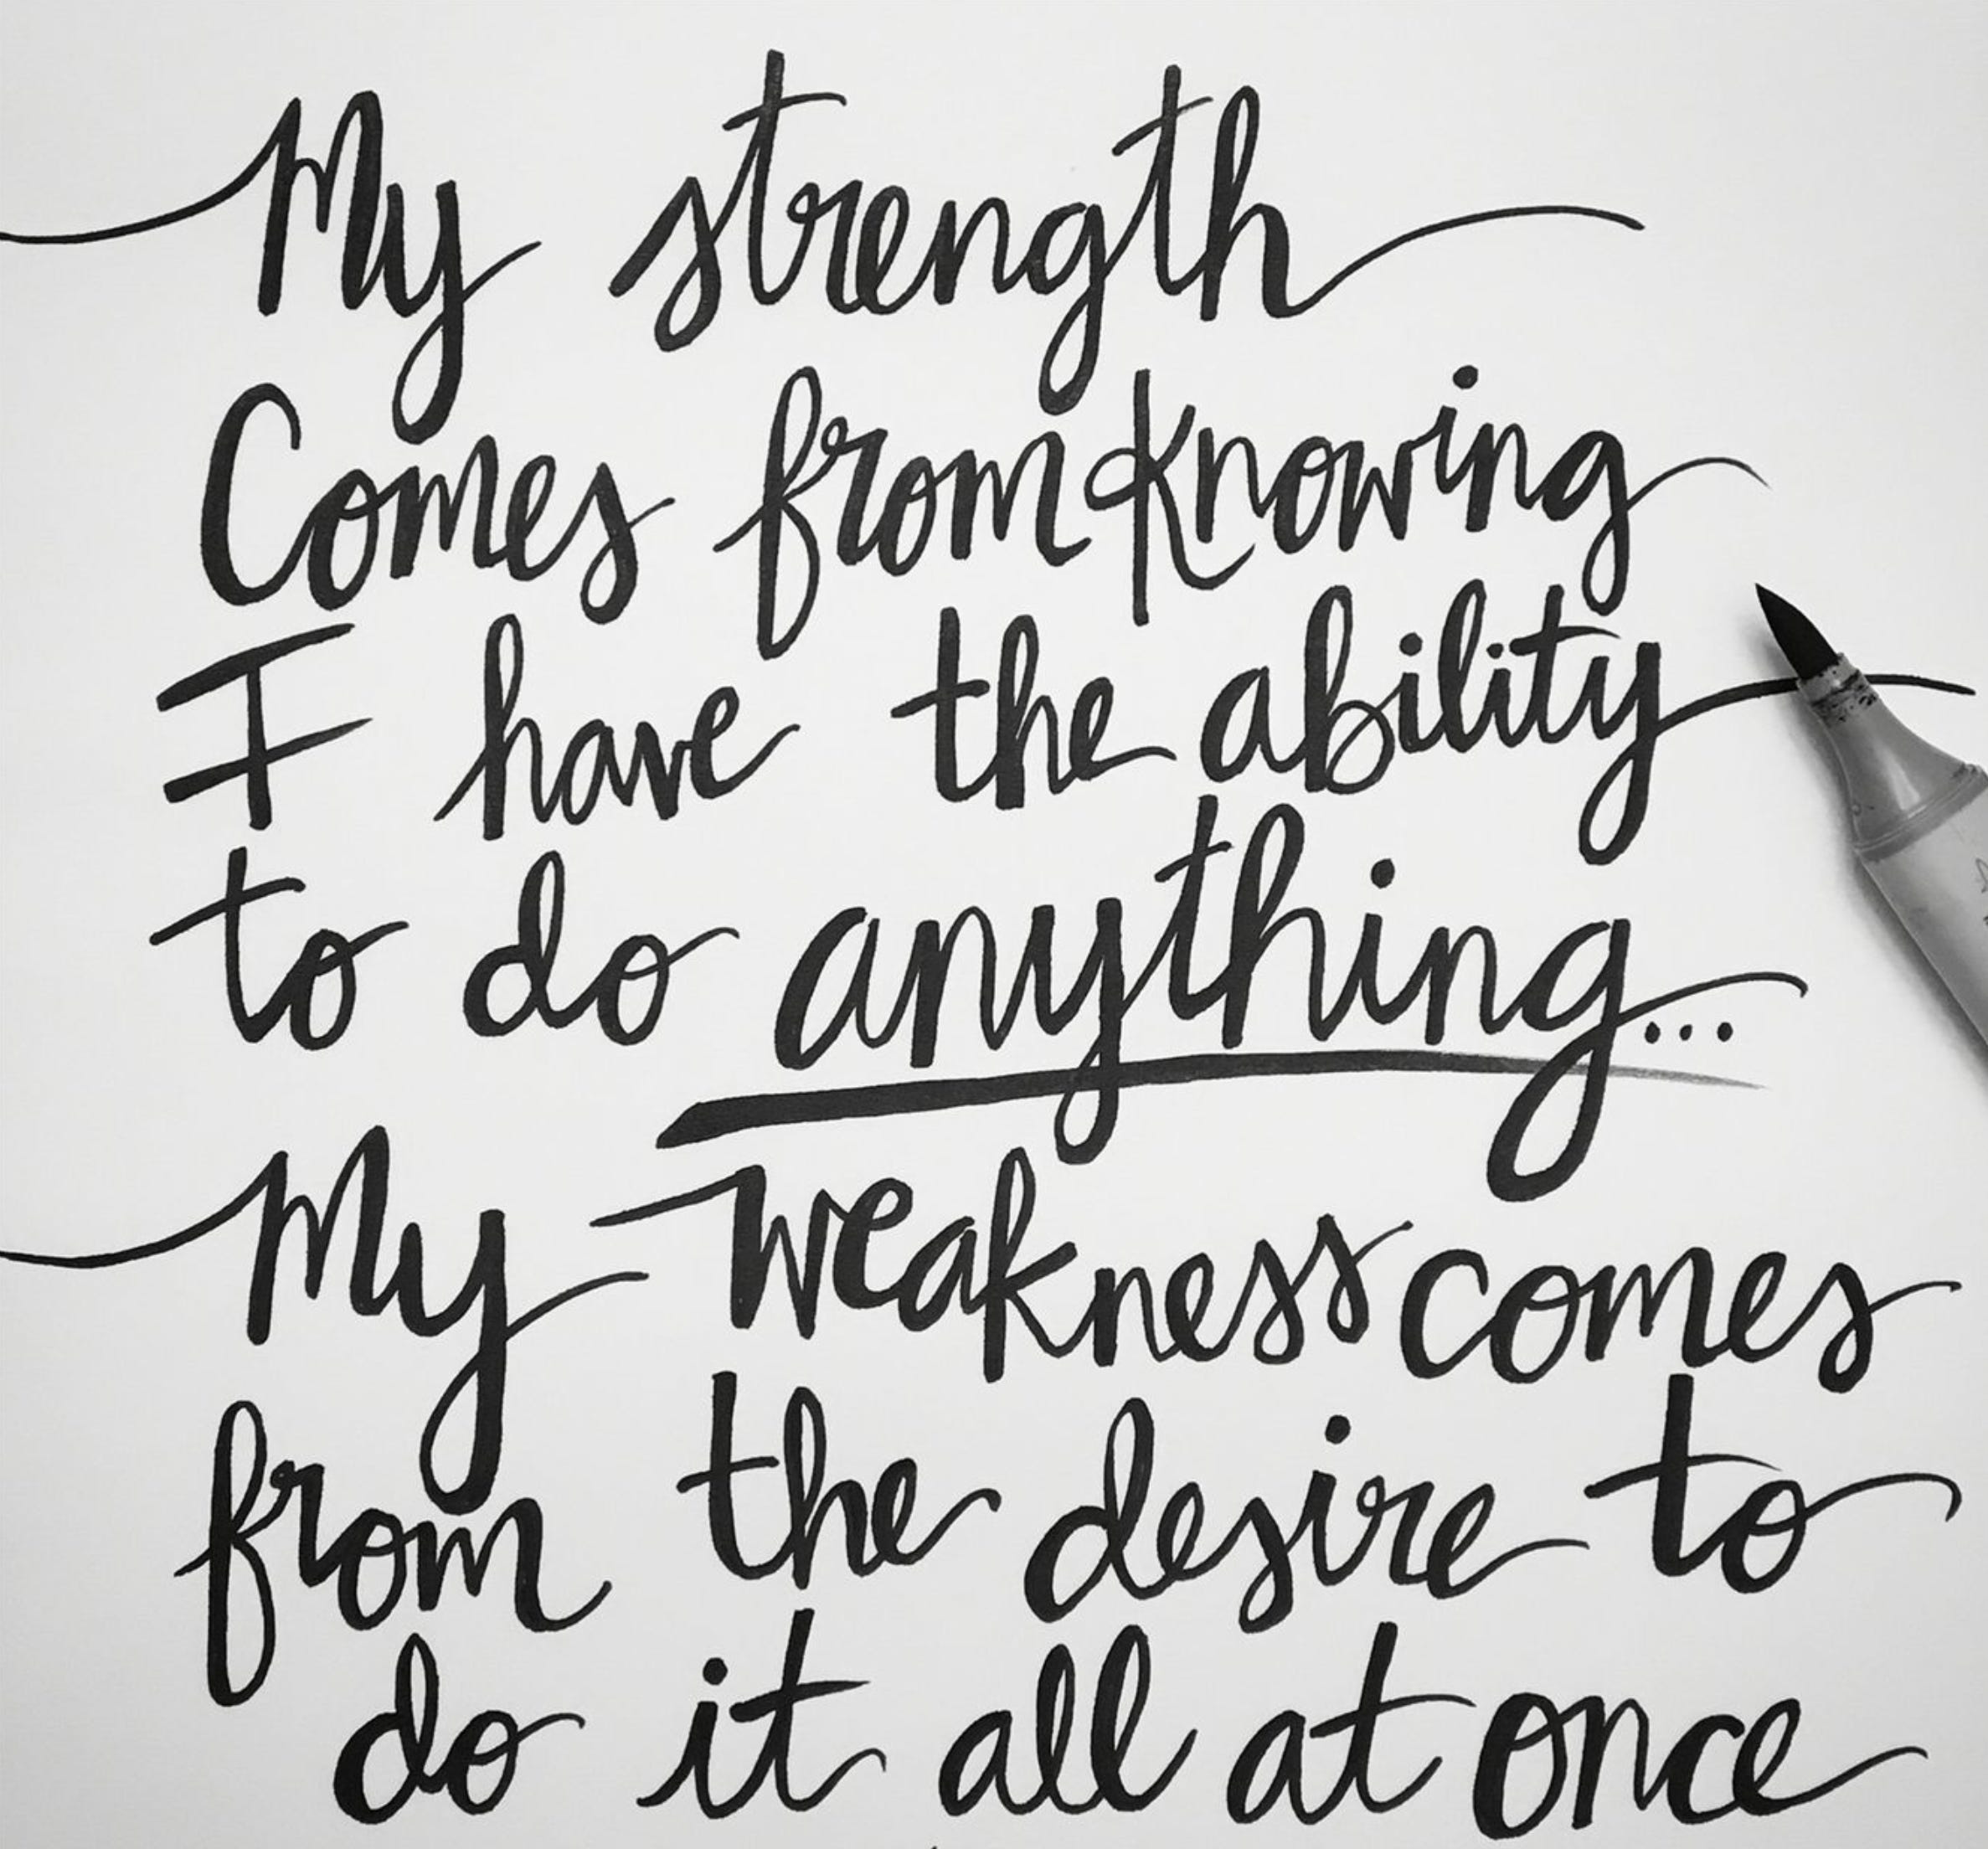 My strength
Comes from Knowing
I have the ability
to do anything...
My weakness comes
from the desire to
do it all at once